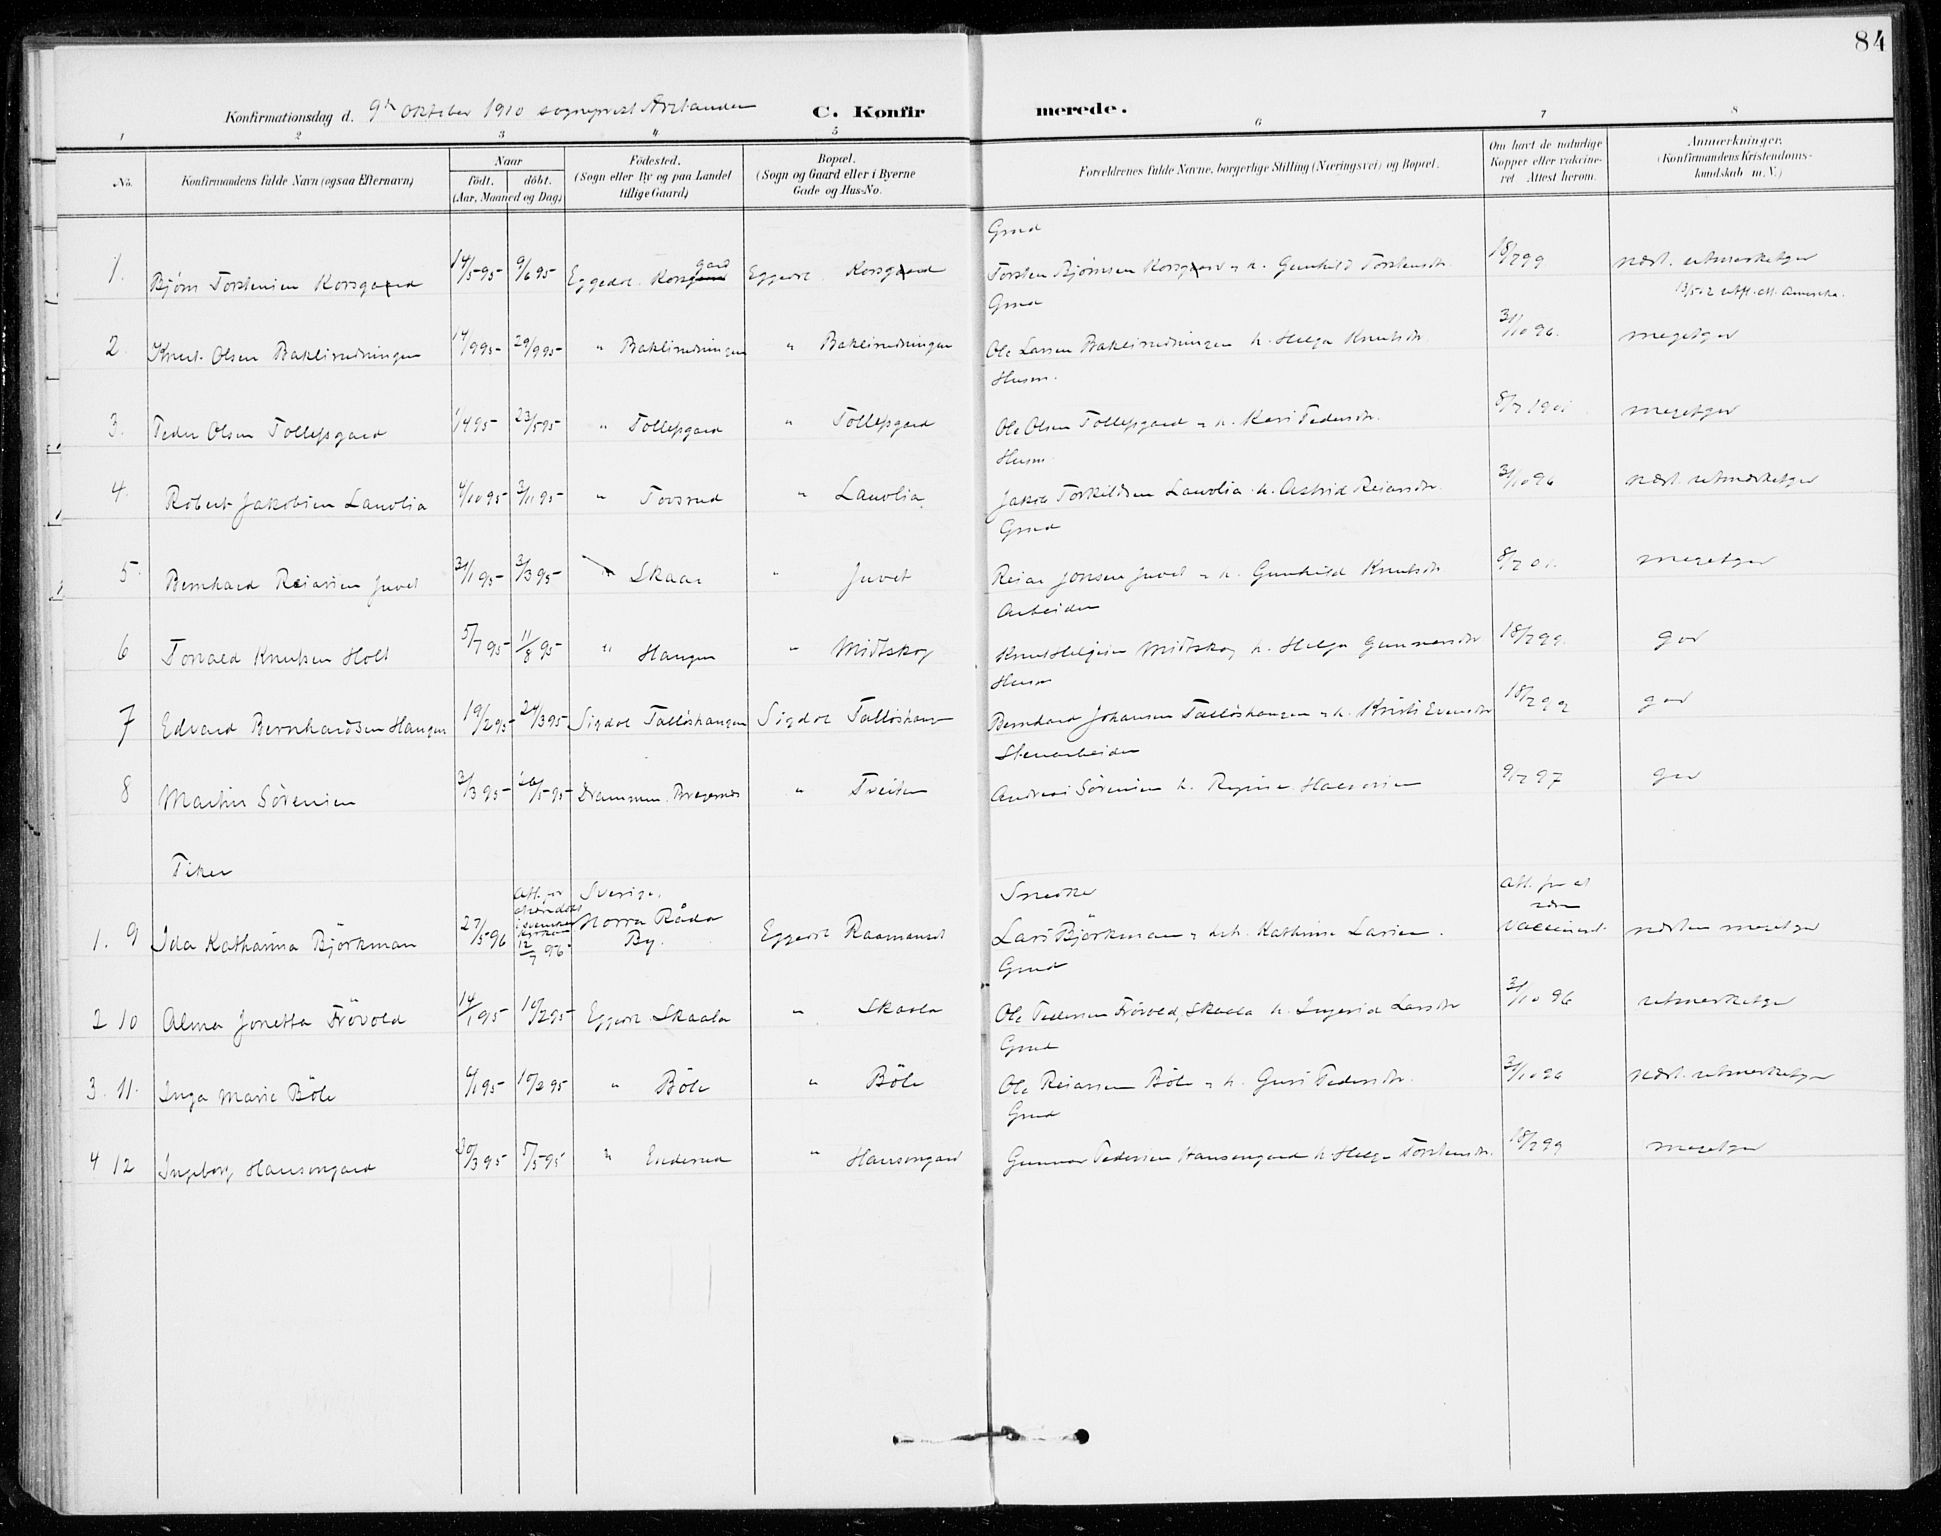 84
Konfirmationsdag d. 9de oktober 1910 sogneprest
C. Konfirmerede.
1 2 3 4 5 6 7 8
No.
Konfirmandens fulde Navn (ogsaa Efternavn)
Naar
födt. döbt.
(Aar, Maaned og Dag)
Födested.
(Sogn eller By og paa Landet
tillige Gaard)
Bopæl.
(Sogn og Gaard eller i Byerne
Gade og Hus-No.
Forældrenes fulde Navne, borgerlige Stilling (Næringsvei) og Bopæl.
Om havt de naturlige
Kopper eller vaccine-
ret. Attest herom.
Anmærkninger.
(Konfirmandens Kristendoms-
kundskab m. V.)
Grnd
1. Bjørn Torstensen Korsgard 14/5 95 9/6 95 Eggedal Korsgard Eggedal Korsgard Torsten Bjørnsen Korsgard & h. Gunhild Torstensdr. 18/7 99 næst. utmerketgod
13/5 12 utfl. att. Amerika.
Grnd
2. Knut Olsen Baklirudningen 14/9 95 29/9 95 " Baklirudningen " Baklirudningen Ole Larsen Baklirudningen h. Helga Knutsdr 31/10 96. megetgod
Husm.
3. Peder Olsen Tollefsgard 1/4 95 23/5 95 " Tollefsgard " Tollefsgard Ole Olsen Tollefsgard & h. Kari Pedersdr. 8/7 1901 megetgod
Husm
4. Robert Jakobsen Lauvlia 4/10 95 3/11 95 " Tovsrud " Lauvlia Jakob Torkildsen Lauvlia h. Astrid Reiarsdr. 31/10 96 næst. utmerketgod
Grnd
5. Bernhard Reiarsen Juvet 31/1 95 3/3 95 " Skaar " Juvet Reiar Jonsen Juvet & h. Gunhild Knutsdr. 8/7 01. megetgod
Arbeider
6 Torvald Knutsen Holt 5/7 95 11/8 95 " Haugen " Midtskog Knut Helgesen Midtskog h. Helga Gunnarsdr 18/7 99. god
Husm
7 Edvard Bernhardsen Haugen 19/2 95 24/3 95 Sigdal Tallöshaugen Sigdal Tallöshaugen Bernhard Johansen Tallöshaugen & h. Kristi Evensdr 18/7 99 god
Stenarbeider
8 Martin Sörensen 3/3 95 26/5 95 Drammen Bragernes " Tveiten Andreas Sörensen h. Regine Halvorsen 9/7 97 god
Piker
Snedker
1. 9 Ida Katharina Björkman 27/5 96 12/7 96 Sverige. Norra Råda By. Eggedal Raamanset Lars Björkman & h. Kathrine Larsen. Att. for at være vaccineret. næsten megetgod
Grnd
2 10 Alma Jonetta Frövold 14/1 95 10/2 95 Eggedal Skaala " Skaala Ole Pedersen Frövold, Skaala h. Ingerid Larsdr 31/10 96 utmerketgod
Grnd
3. 11. Inga Marie Böle 4/1 95 10/2 95 " Böle " Böle Ole Reiarsen Böle & h. Guri Pedersdr. 31/10 96 næst. utmerketgod
Grnd
4 12 Ingeborg Hansengard 30/3 95 5/5 95 " Enderud " Hansengard Gunnar Pedersen Hansengard h. Helga Torstensdr. 18/7 99 megetgod